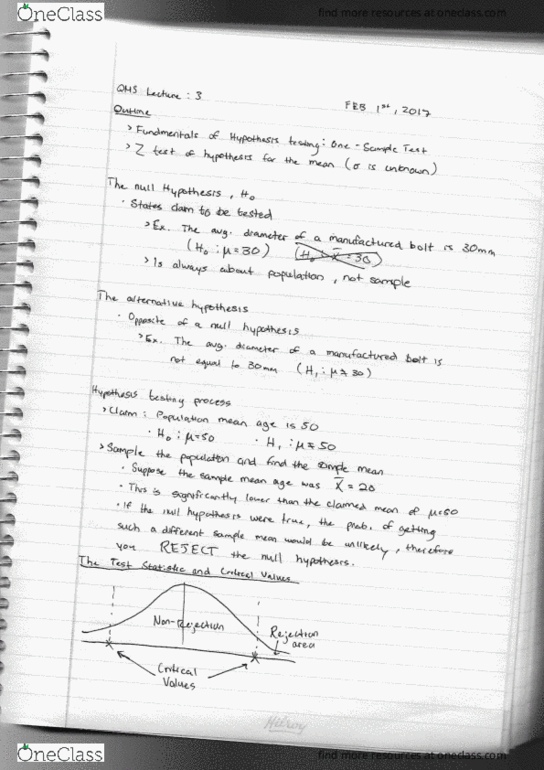 OneClass
find more resources at oneclass.com
QMS Lecture : 3
FEB 1st, 2017
Outline
> Fundamentals of Hypothesis testing: One-Sample Test
> Z test of hypothesis for the mean (σ is unknown)
The null Hypothesis, H₀
· States claim to be tested
> Ex. The avg. diameter of a manufactured bolt is 30mm
(H₀ : μ=30) (H₀ : X̄=30)
> Is always about population, not sample
The alternative hypothesis
· Opposite of a null hypothesis
> Ex. The avg. diameter of a manufactured bolt is
not equal to 30mm (H₁ : μ≠30)
Hypothesis testing process
> Claim : Population mean age is 50
· H₀ : μ=50 · H₁ : μ≠50
> Sample the population and find the sample mean
· Suppose the sample mean age was X̄ = 20
· This is significantly lower than the claimed mean of μ=50
· If the null hypothesis were true, the prob. of getting
such a different sample mean would be unlikely, therefore
you REJECT the null hypothesis.
The Test Statistic and Critical Values
Non-Rejection
Rejection
area
Critical
Values
Hilroy
OneClass
find more resources at oneclass.com